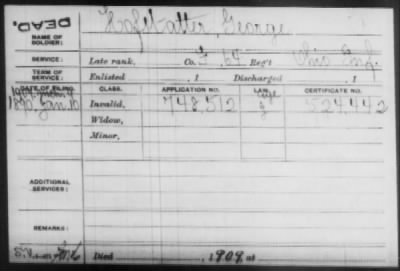 DEAD.
NAME OF SOLDIER: Hofstatter, George
SERVICE: Late rank, Co. I, 64 Reg't Ohio Inf.
TERM OF SERVICE: Enlisted , 1 Discharged , 1
DATE OF FILING. CLASS. APPLICATION NO. LAW. CERTIFICATE NO.
1890 Jan. 10 Invalid, 748,512 524,442
Widow,
Minor,
ADDITIONAL SERVICES:
REMARKS:
Died , 1909, at